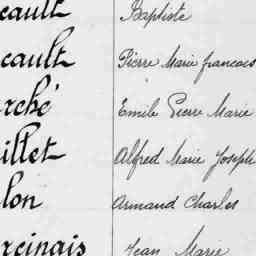 cault Baptiste
cault Pierre Marie francois
rché Emile Pierre Marie
illet Alfred Marie Joseph
lon Armand Charles
rcinais Jean Marie